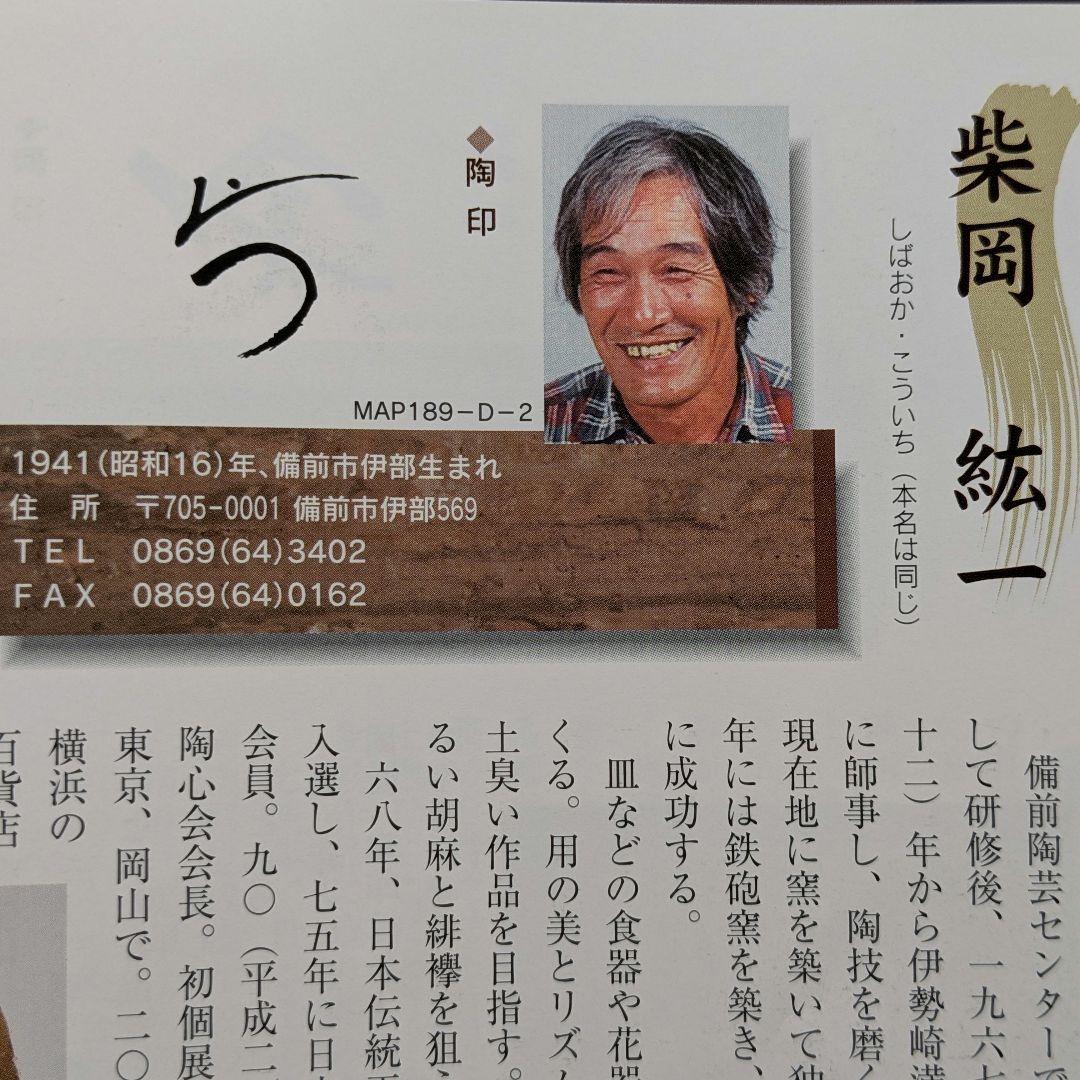 柴岡 紘一
しばおか・こういち（本名は同じ）
◆陶印
MAP189-D-2
1941（昭和16）年、備前市伊部生まれ
住　所　〒705-0001 備前市伊部569
TEL　0869(64)3402
FAX　0869(64)0162
備前陶芸センターで
して研修後、一九六七
十二）年から伊勢崎満
に師事し、陶技を磨く
現在地に窯を築いて独
年には鉄砲窯を築き、
に成功する。
皿などの食器や花器
くる。用の美とリズム
土臭い作品を目指す。
るい胡麻と緋襷を狙
六八年、日本伝統工
入選し、七五年に日本
会員。九〇（平成二
陶心会会長。初個展
東京、岡山で。二〇
横浜の
百貨店